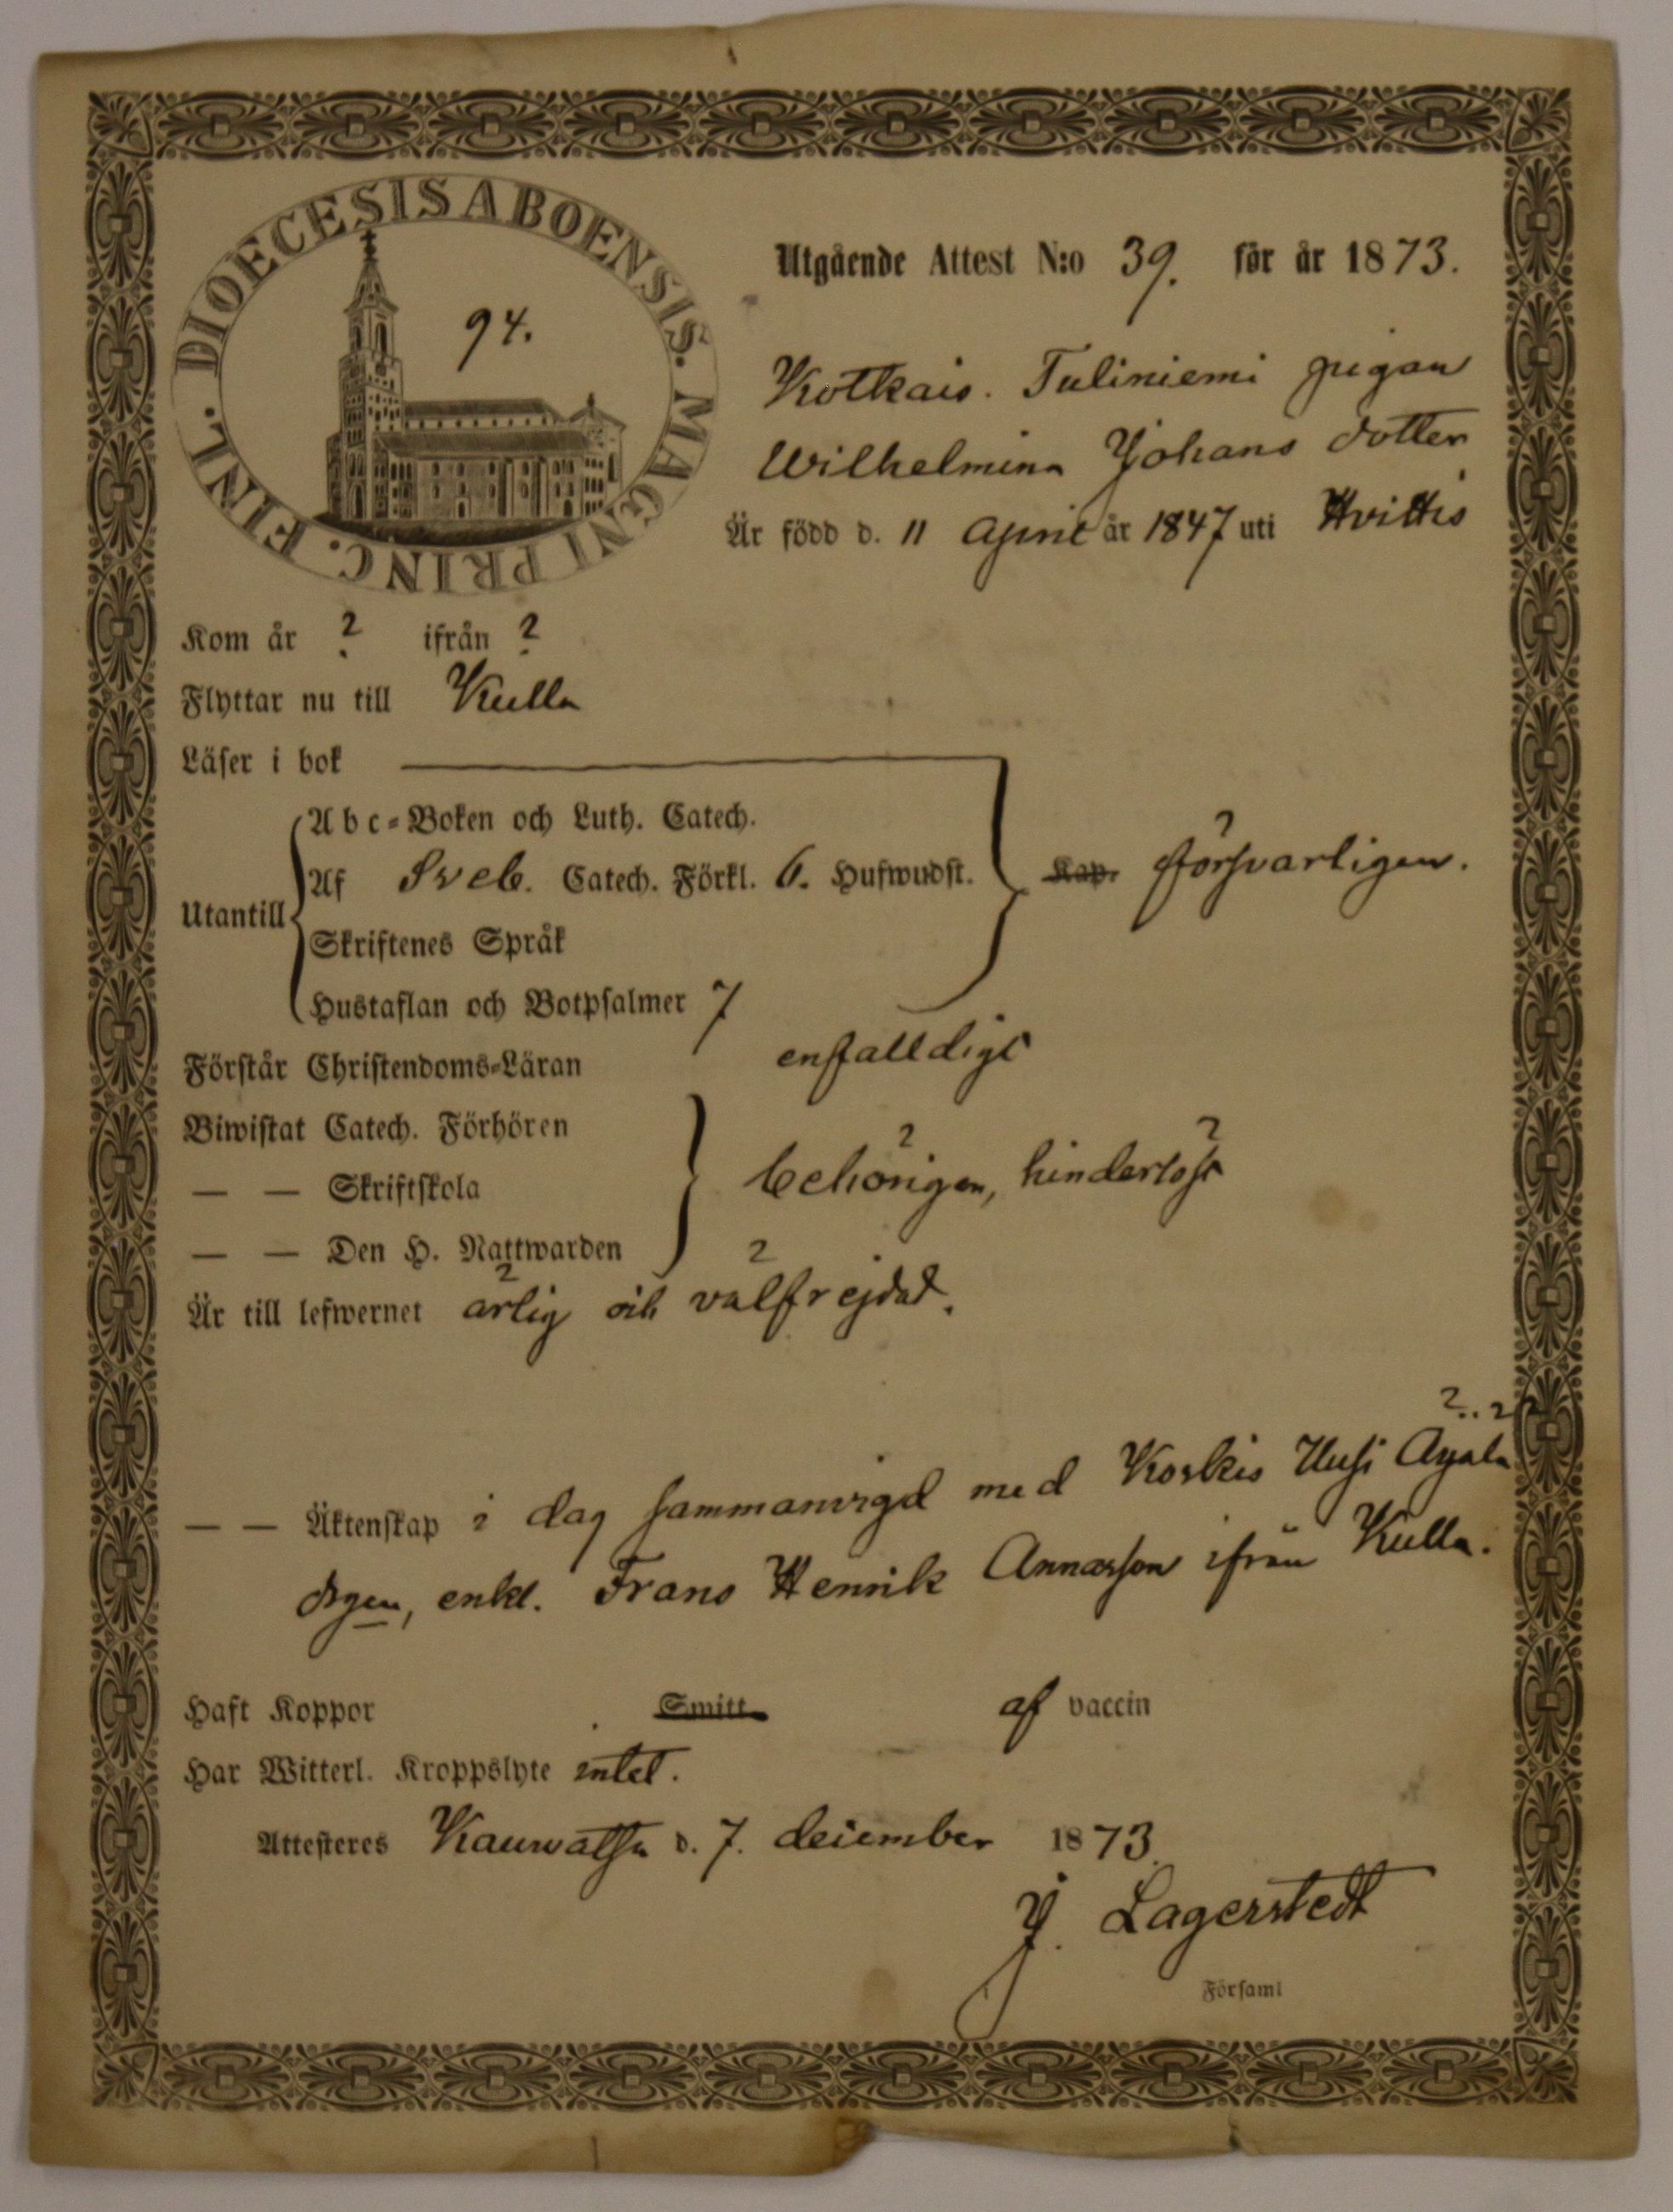 DIOECESIS ABOENSIS. MAGNI PRINC. FINL.
94.
Utgående Attest N:o 39. för år 1873.
Kotkais. Tuliniemi pigan
Wilhelmina Johans dotter
Är född d. 11 April år 1847 uti Hvittis
Kom år ? ifrån ?
Flyttar nu till Kulla
Läser i bok
Utantill
Abc-Boken och Luth. Catech.
Af Sveb. Catech. Förkl. 6. Hufwudst. Kap. försvarligen.
Skriftenes Språk
Hustaflan och Botpsalmer 7
Förstår Christendoms-Läran enfalldigt
Biwistat Catech. Förhören
— — Skriftskola behörigen, hinderlöst
— — Den H. Nattwarden
Är till lefwernet ärlig och välfrejdad.
— — Äktenskap i dag sammanvigd med Koskis Uusi
enkl. Frans Henrik Annasson ifrån Kulla.
Haft Koppor Smitt af vaccin
Har Witterl. Kroppslyte intet.
Attesteres Kauwatsa d. 7. december 1873
J. Lagerstedt
Församl